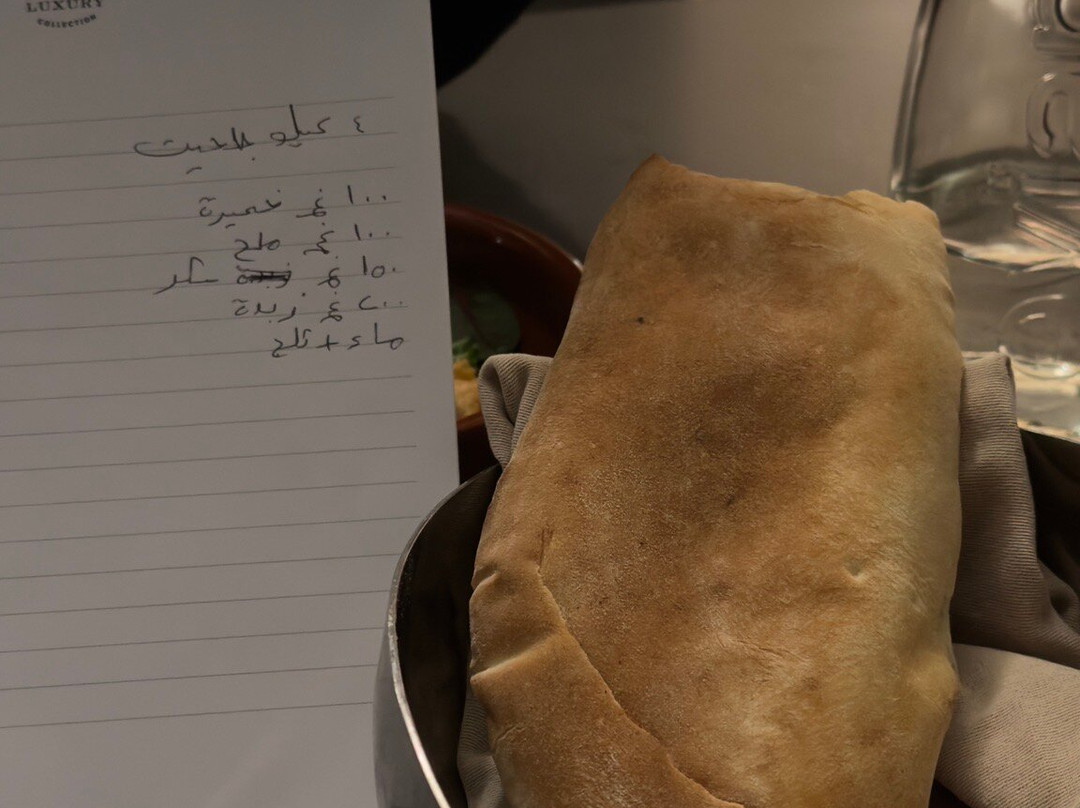 LUXURY
COLLECTION
٤ كيلو طحين
١٠٠ غم خميرة
١٠٠ غم ملح
١٥٠ غم سكر
٢٠٠ غم زبدة
ماء + ثلج